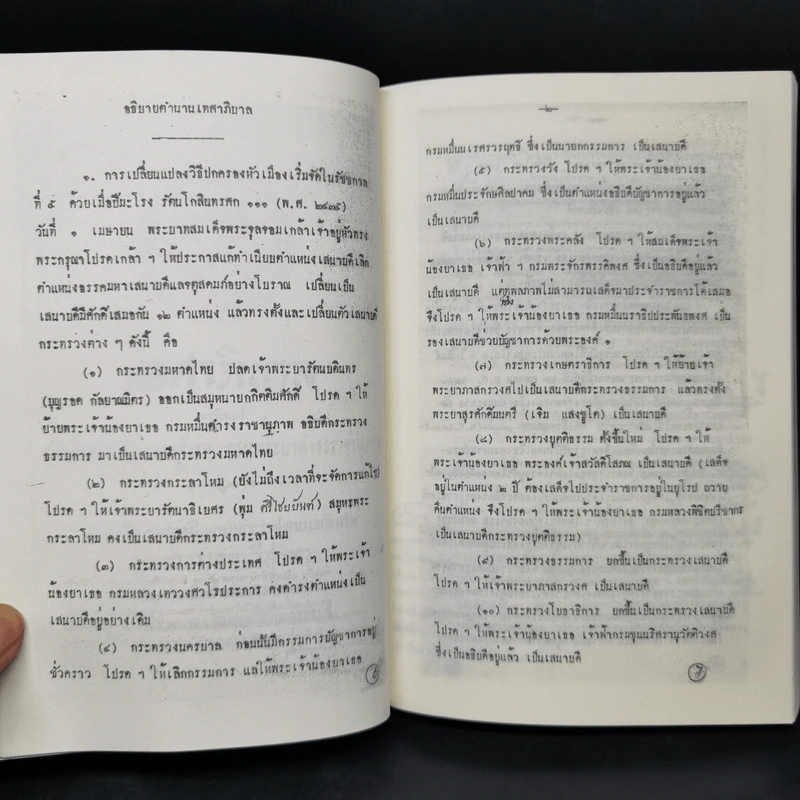 อธิบายตำนานเทศาภิบาล
๑. การเปลี่ยนแปลงวิธีปกครองหัวเมืองเริ่มจัดในรัชชกาล
ที่ ๕ ด้วยเมื่อปีมะโรง รัตนโกสินทรศก ๑๑๑ (พ.ศ. ๒๔๓๕)
วันที่ ๑ เมษายน พระบาทสมเด็จพระจุลจอมเกล้าเจ้าอยู่หัวทรง
พระกรุณาโปรดเกล้า ฯ ให้ประกาศแก้ทำเนียบตำแหน่งเสนาบดีเลิก
ตำแหน่งอรรคมหาเสนาบดีแลจตุสดมภ์อย่างโบราณ เปลี่ยนเป็น
เสนาบดีมีศักดิ์เสมอกัน ๑๒ ตำแหน่ง แล้วทรงตั้งและเปลี่ยนตัวเสนาบดี
กระทรวงต่าง ๆ ดังนี้ คือ
(๑) กระทรวงมหาดไทย ปลดเจ้าพระยารัตนบดินทร
(บุญรอด กัลยาณมิตร) ออกเป็นสมุหนายกกิตติมศักดิ์ โปรด ฯ ให้
ย้ายพระเจ้าน้องยาเธอ กรมหมื่นดำรงราชานุภาพ อธิบดีกระทรวง
ธรรมการ มาเป็นเสนาบดีกระทรวงมหาดไทย
(๒) กระทรวงกระลาโหม (ยังไม่ถึงเวลาที่จะจัดการแก้ไข)
โปรด ฯ ให้เจ้าพระยารัตนาธิเบศร (พุ่ม ศรีไชยยันต์) สมุหพระ
กระลาโหม คงเป็นเสนาบดีกระทรวงกระลาโหม
(๓) กระทรวงการต่างประเทศ โปรด ฯ ให้พระเจ้า
น้องยาเธอ กรมหลวงเทววงศวโรประการ คงดำรงตำแหน่งเป็น
เสนาบดีอยู่อย่างเดิม
(๔) กระทรวงนครบาล ก่อนนั้นมีกรรมการบัญชาการอยู่
ชั่วคราว โปรด ฯ ให้เลิกกรรมการ แลให้พระเจ้าน้องยาเธอ
๖
๒
กรมหมื่นนเรศรวรฤทธิ์ ซึ่งเป็นนายกกรรมการ เป็นเสนาบดี
(๕) กระทรวงวัง โปรด ฯ ให้พระเจ้าน้องยาเธอ
กรมหมื่นประจักษศิลปาคม ซึ่งเป็นตำแหน่งอธิบดีบัญชาการอยู่แล้ว
เป็นเสนาบดี
(๖) กระทรวงพระคลัง โปรด ฯ ให้สมเด็จพระเจ้า
น้องยาเธอ เจ้าฟ้า ฯ กรมพระจักรพรรดิพงศ ซึ่งเป็นอธิบดีอยู่แล้ว
เป็นเสนาบดี แต่ทุพลภาพไม่สามารถเสด็จมาประจำราชการได้เสมอ
จึงโปรด ฯ ให้พระเจ้าน้องยาเธอ กรมหมื่นนราธิปประพันธพงศ เป็น
รองเสนาบดีช่วยบัญชาการด้วยพระองค์ ๑
(๗) กระทรวงเกษตราธิการ โปรด ฯ ให้ย้ายเจ้า
พระยาภาสกรวงศไปเป็นเสนาบดีกระทรวงธรรมการ แล้วทรงตั้ง
พระยาสุรศักดิ์มนตรี (เจิม แสงชูโต) เป็นเสนาบดี
(๘) กระทรวงยุติธรรม ตั้งขึ้นใหม่ โปรด ฯ ให้
พระเจ้าน้องยาเธอ พระองค์เจ้าสวัสดิโสภณ เป็นเสนาบดี (เสด็จ
อยู่ในตำแหน่ง ๒ ปี ต้องเสด็จไปประจำราชการอยู่ในยุโรป ถวาย
คืนตำแหน่ง จึงโปรด ฯ ให้พระเจ้าน้องยาเธอ กรมหลวงพิชิตปรีชากร
เป็นเสนาบดีกระทรวงยุติธรรม)
(๙) กระทรวงธรรมการ ยกขึ้นเป็นกระทรวงเสนาบดี
โปรด ฯ ให้เจ้าพระยาภาสกรวงศ เป็นเสนาบดี
(๑๐) กระทรวงโยธาธิการ ยกขึ้นเป็นกระทรวงเสนาบดี
โปรด ฯ ให้พระเจ้าน้องยาเธอ เจ้าฟ้ากรมขุนนริศรานุวัดติวงศ
ซึ่งเป็นอธิบดีอยู่แล้ว เป็นเสนาบดี
๗